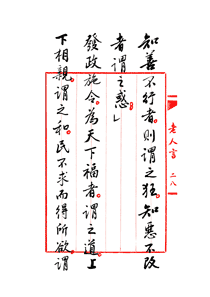 知善不行者。則謂之狂。知惡不改
者謂之惑」
發政施令。為天下福者。謂之道。上
下相親。謂之和。民不求而得所欲。謂
老人言 二八